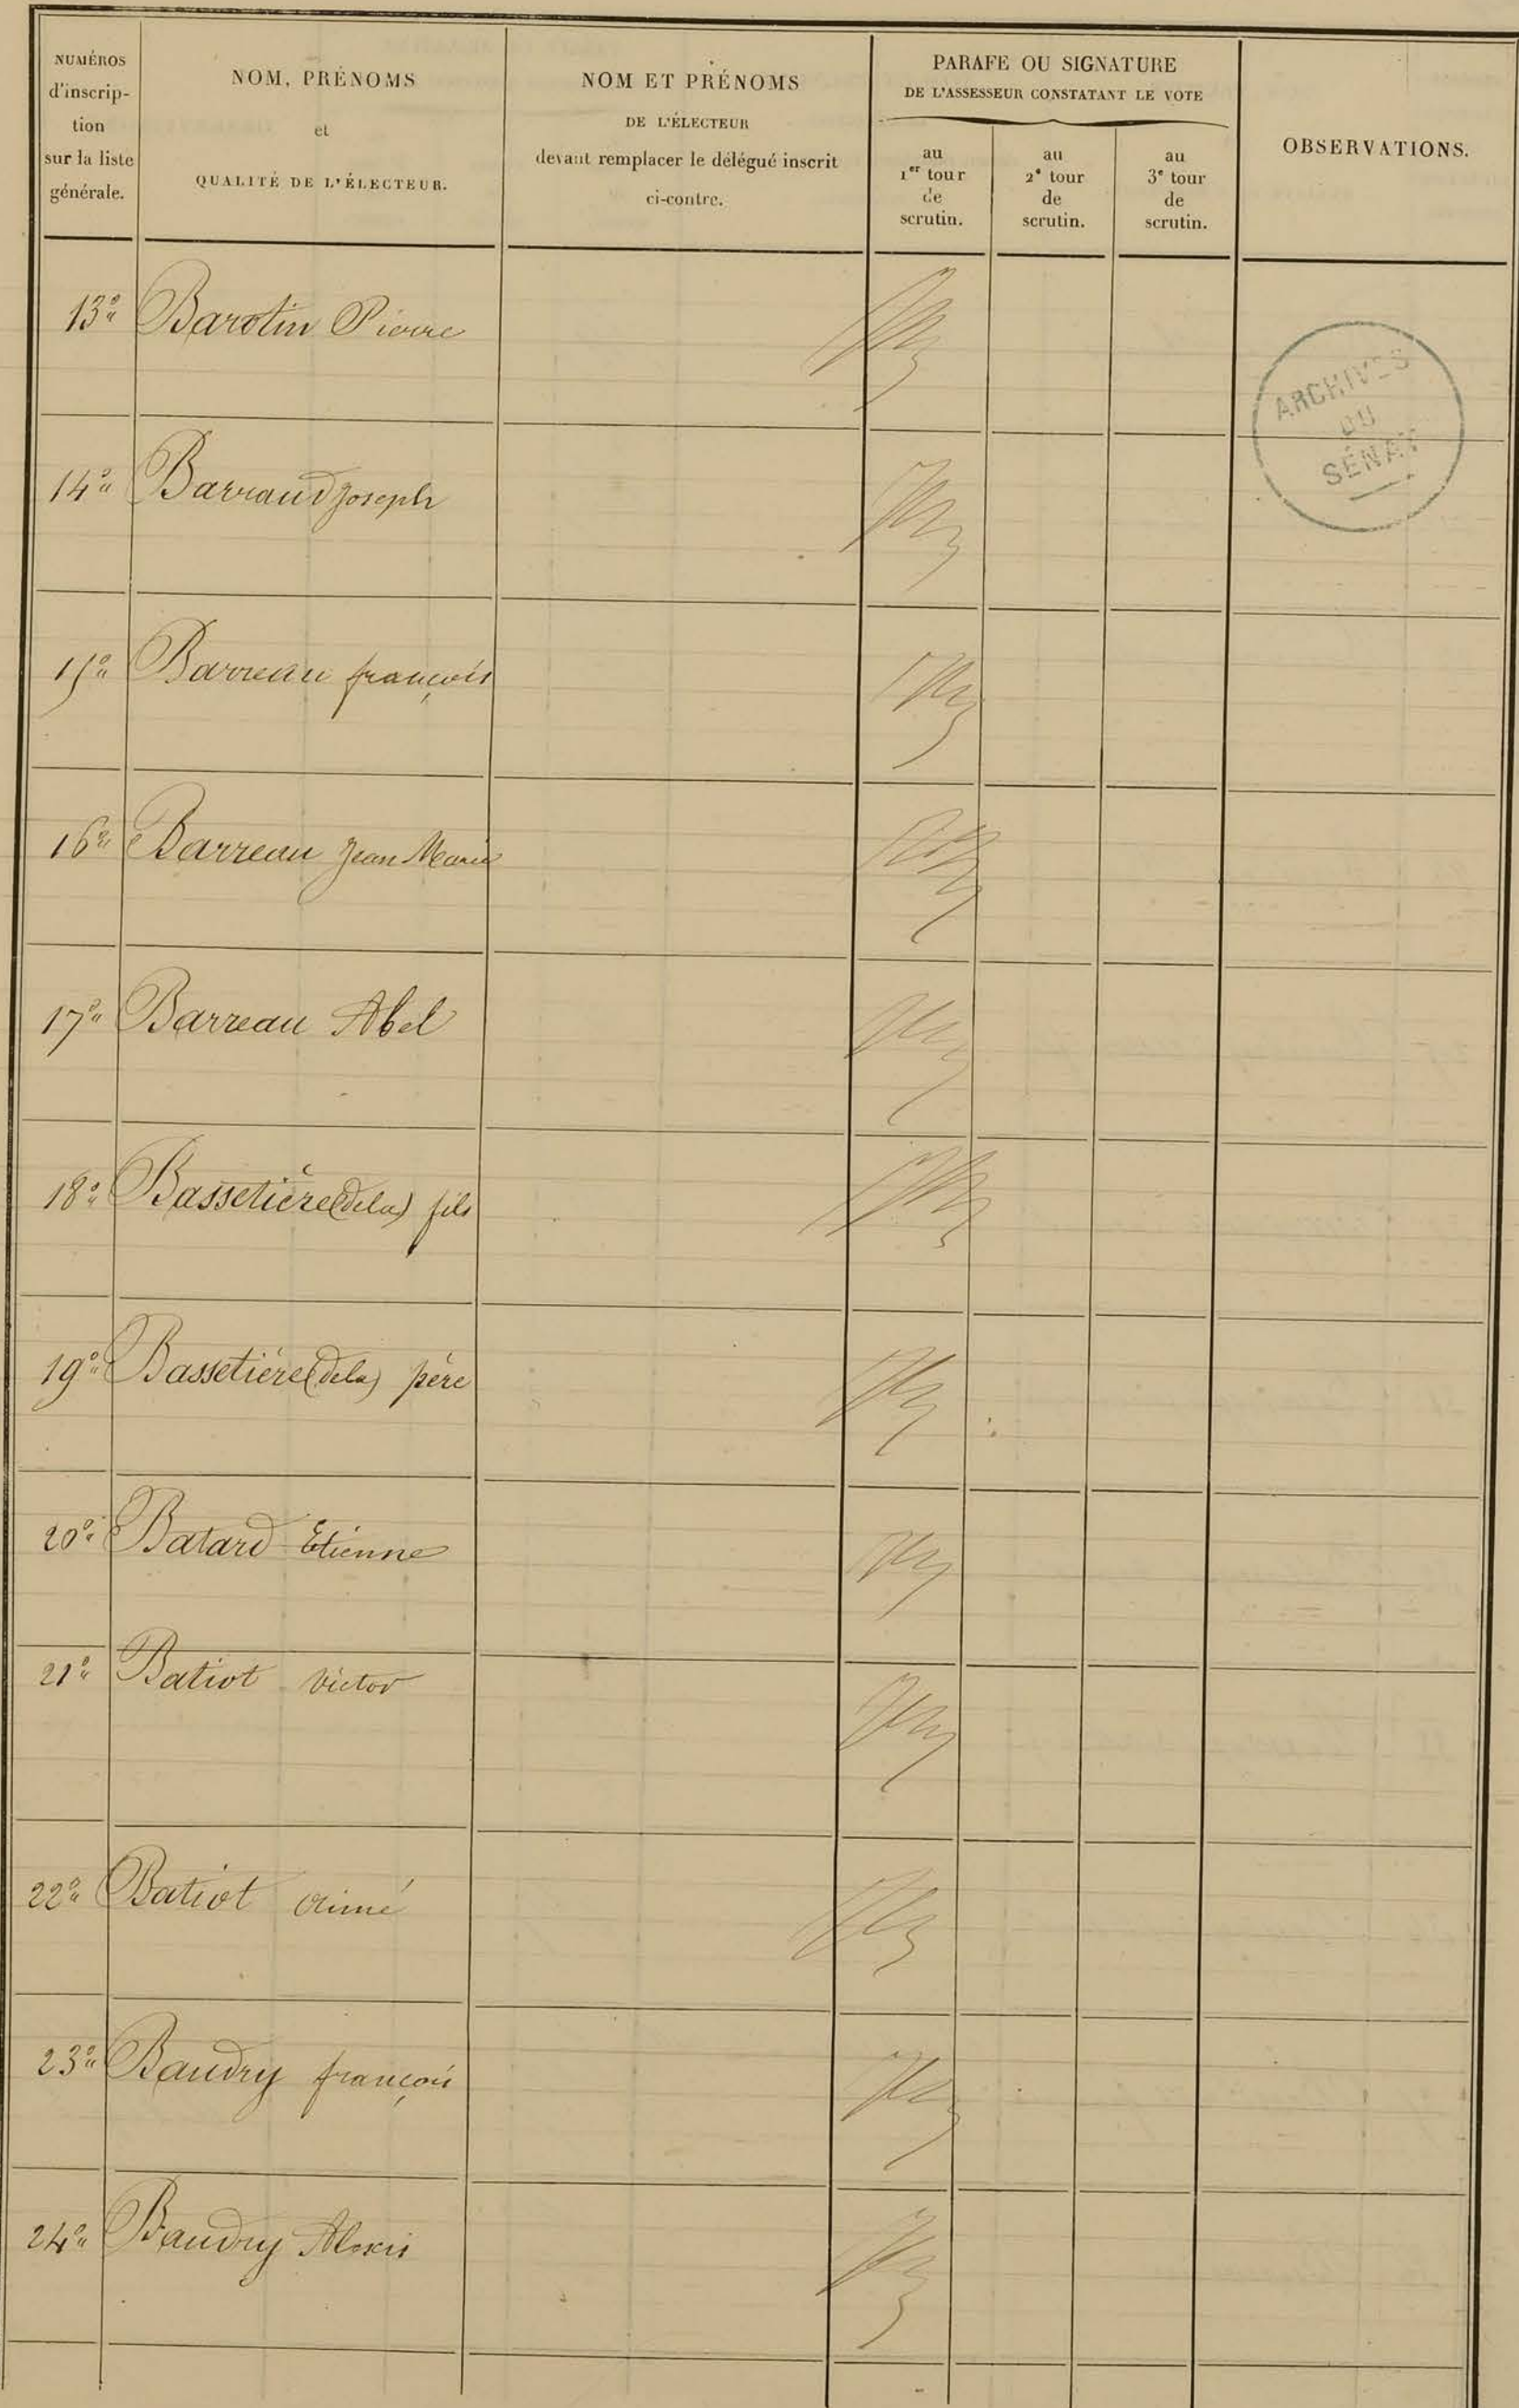 NUMÉROS
d'inscrip-
tion
sur la liste
générale.
NOM, PRÉNOMS
et
QUALITÉ DE L'ÉLECTEUR.
NOM ET PRÉNOMS
DE L'ÉLECTEUR
devant remplacer le délégué inscrit
ci-contre.
PARAFE OU SIGNATURE
DE L'ASSESSEUR CONSTATANT LE VOTE
au
1er tour
de
scrutin.
au
2e tour
de
scrutin.
au
3e tour
de
scrutin.
OBSERVATIONS.
13° Barotin Pierre
ARCHIVES
DU
SÉNAT
14° Barraud Joseph
15° Barreau françois
16° Barreau Jean Marie
17° Barreau Abel
18° Bassetière (de la) fils
19° Bassetière (de la) père
20° Batard Etienne
21° Batiot Victor
22° Batiot aimé
23° Baudry françois
24° Baudry Alexis